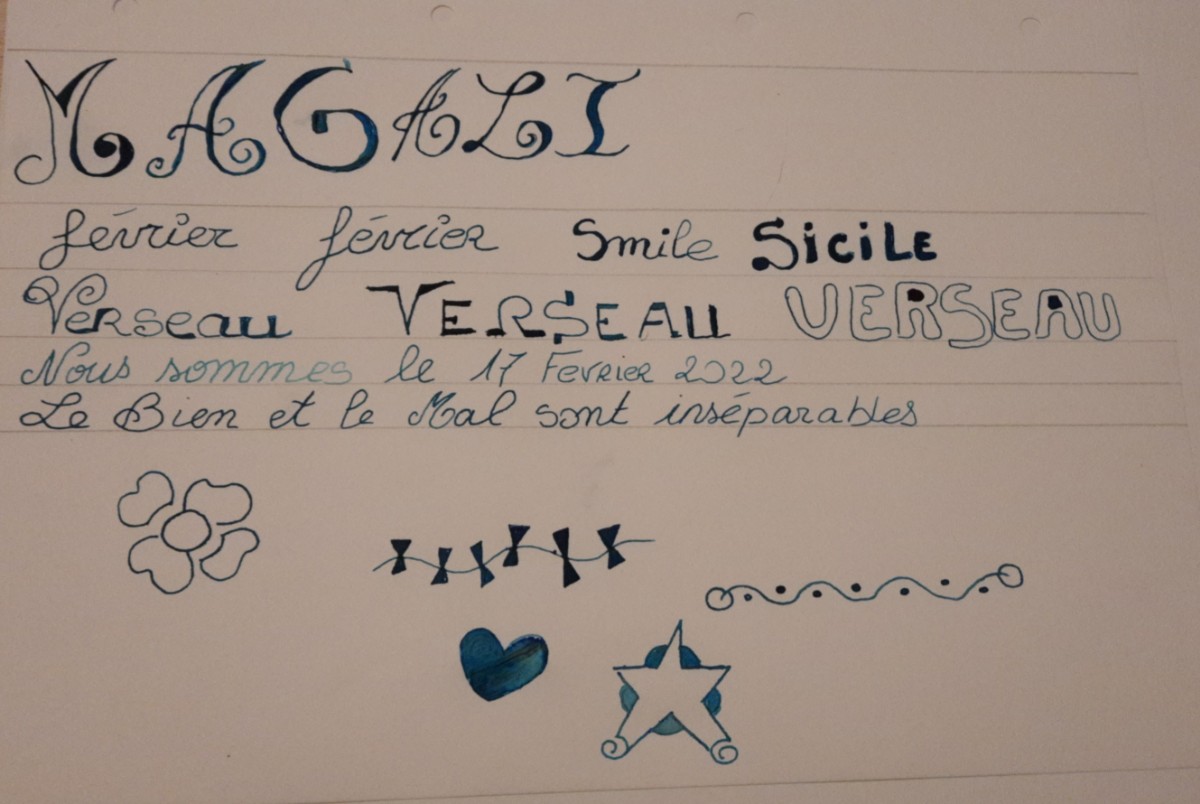 MAGALI
février février Smile SiciLE
Verseau VERSEAU VERSEAU
Nous sommes le 17 Fevrier 2022
Le Bien et le Mal sont inséparables